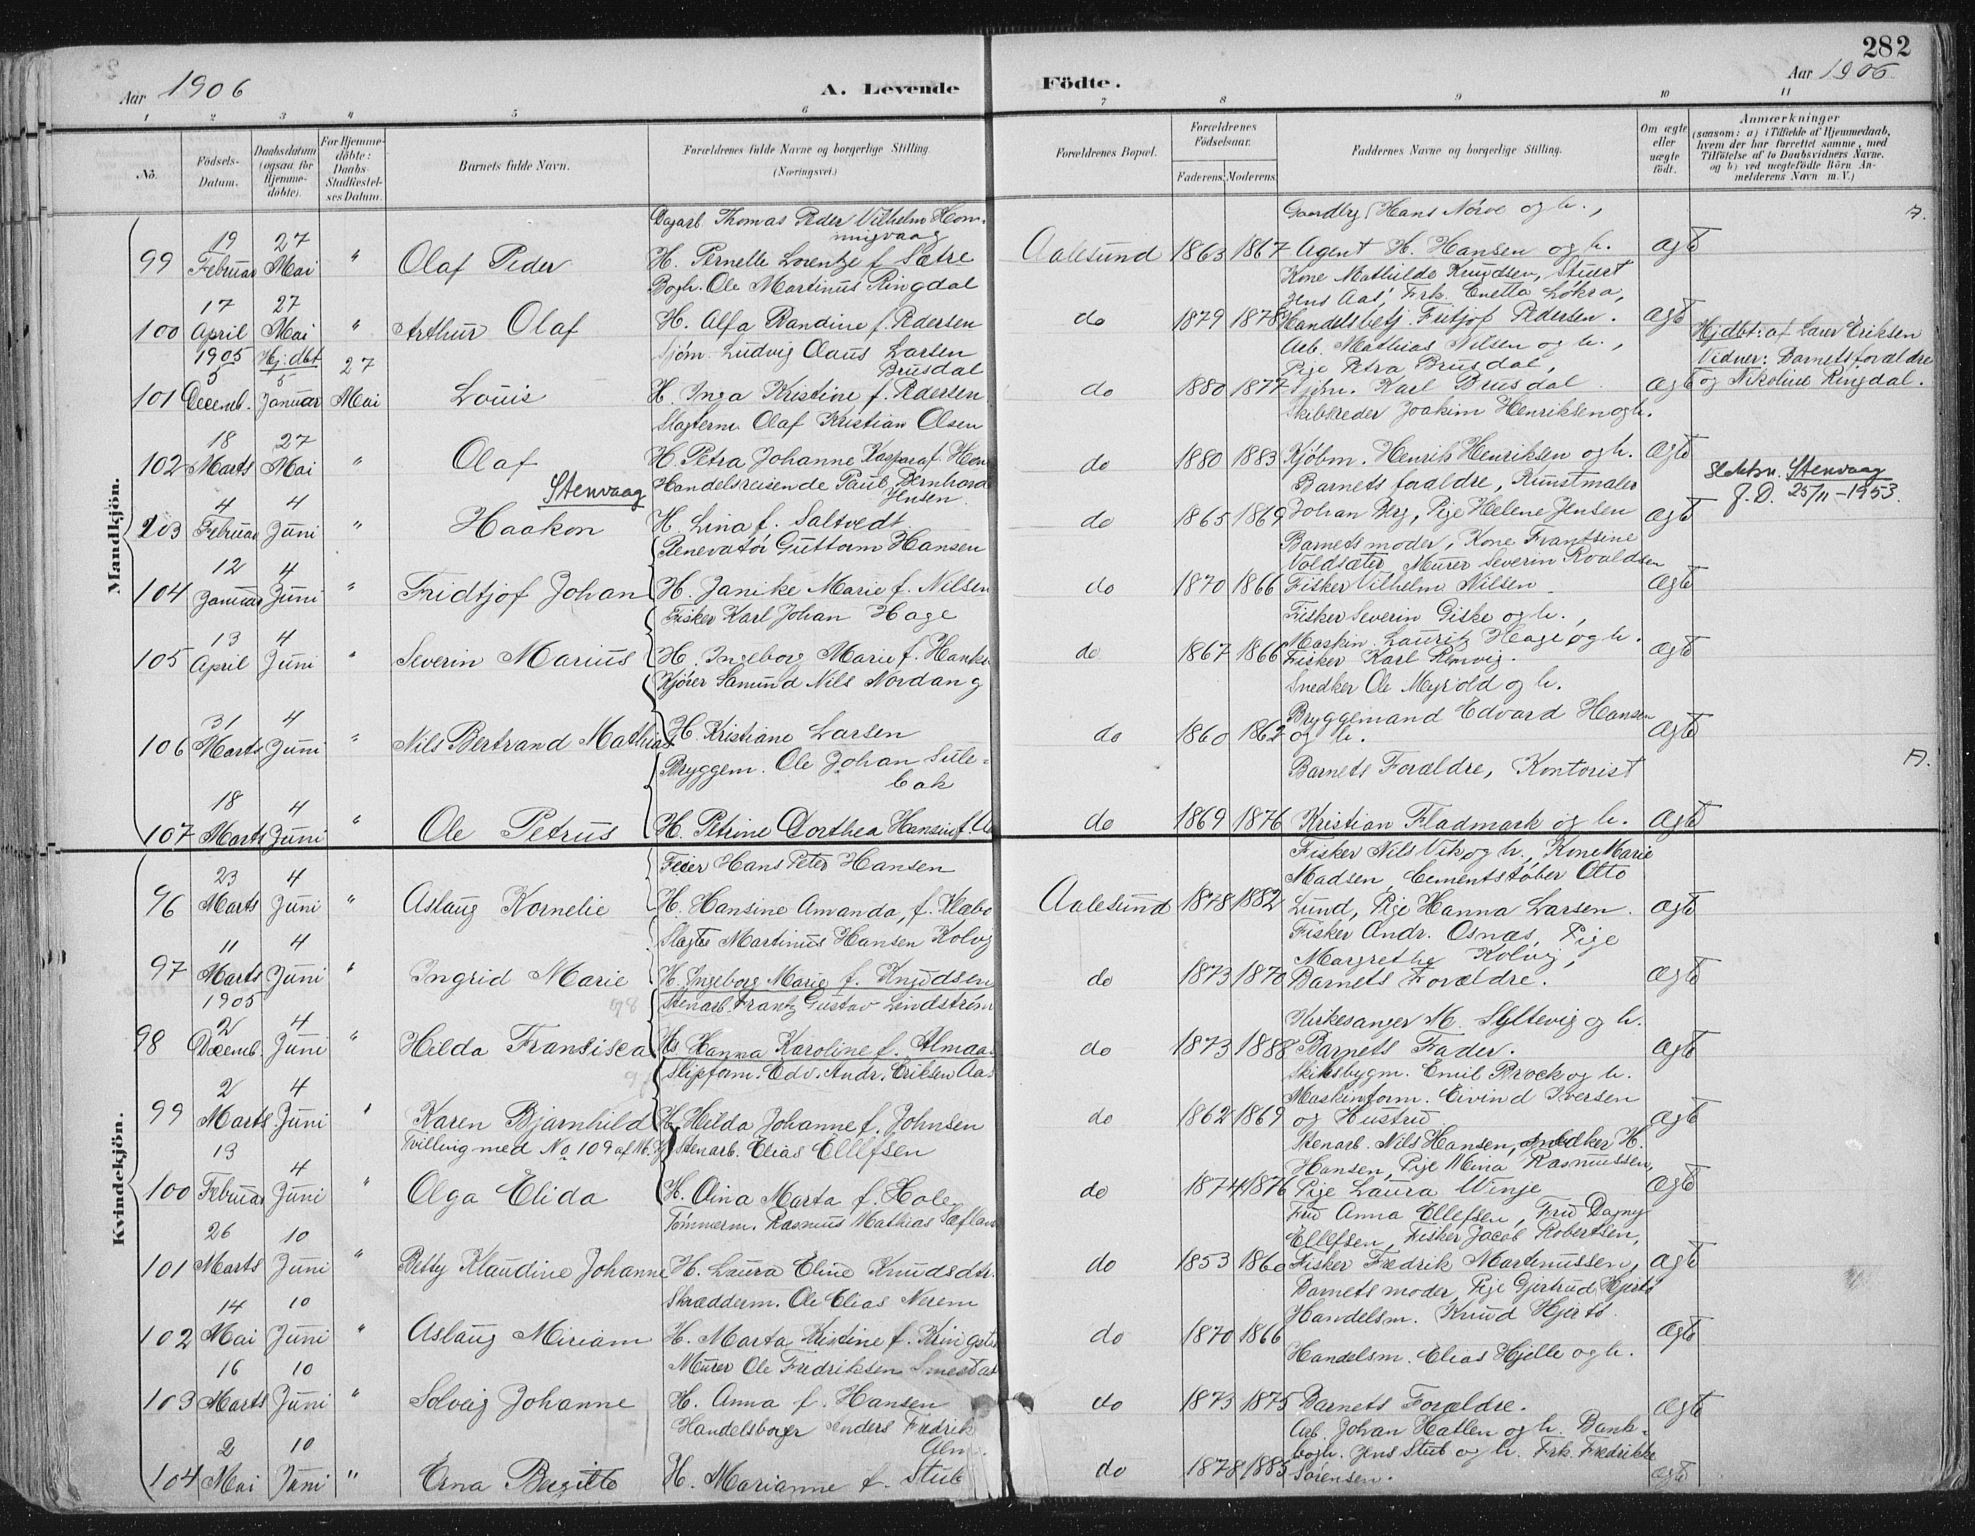 282
Aar 1906
A. Levende
Födte.
Aar 1906
1 2 3 4 5 6 7 8 9 10 11
No.
Födsels-Datum.
Daabsdatum (ogsaa for Hjemmedöbte).
For Hjemmedöbte: Daabs-Stadfæstelses Datum.
Barnets fulde Navn.
Forældrenes fulde Navne og borgerlige Stilling. (Næringsvei.)
Forældrenes Bopæl.
Forældrenes Födselsaar.
Faderens. Moderens.
Faddernes Navne og borgerlige Stilling.
Om ægte eller uægte födt.
Anmærkninger
(saasom: a) i Tilfælde af Hjemmedaab, hvem der har forrettet samme, med Tilföielse af to Daabsvidners Navne, og b) ved uegtefödte Börn Anmelderens Navn m. V.)
Mandkjön.
99 19 Februar 27 Mai " Olaf Peder
Dagarb. Thomas Peder Vilhelm Hom-
mingvaag
H. Pernelle Lorentze f. Sætre
Aalesund 1863 1867
Gaardbr. Hans Nörve og h.,
Agent H. Hansen og h.
Kone Mathilde Knudsen, Stuert
Ægte
100 17 April 27 Mai " Arthur Olaf
Bogh. Ole Martinus Ringdal
H. Alfa Randine f. Pedersen
do 1879 1878
Jens Aas, Frk. Enetta Lökra,
Handelsbetj. Fritjof Pedersen.
Ægte
101 1905 5 Decemb. Hj: dbt 5 Januar 27 Mai Louis
Sjöm. Ludvig Olaus Larsen
Brusdal
H. Inga Kristine f. Pedersen
do 1880 1877
Arb. Mathias Nilsen og h.,
Pige Petra Brusdal,
Sjöm. Karl Brusdal.
Ægte
Hj.dbt: af Laur Eriksen
Vidner: Barnets forældre
og Nikoline Ringdal.
102 18 Marts 27 Mai " Olaf
Slagterm. Olaf Kristian Olsen
H. Petra Johanne Kaspara f. Hen
do 1880 1883
Skibsreder Joakim Henriksen og h.
Kjöbm. Henrik Henriksen og h.
Ægte
103 4 Februar 4 Juni " Haakon
Stenvaag
Handelsreisende Paul Bernhard
Jensen.
H. Lina f. Saltvedt
do 1865 1869
Barnets forældre, Kunstmaler
Johan Berg, Pige Helene Jensen
Ægte
Slektsn. Stenvaag
J. D. 25/11-1953.
104 12 Januar 4 Juni " Fridtjof Johan
Renovatör Guttorm Hansen
H. Janike Marie f. Nilsen
do 1870 1866
Barnets moder, Kone Frantsine
Voldsæter, Murer Severin Roaldsen
Fisker Vilhelm Nilsen
Ægte
105 13 April 4 Juni " Severin Marius
Fisker Karl Johan Hage
H. Ingeborg Marie f. Hanks
do 1867 1866
Fisker Severin Giske og h.,
Maskin. Lauritz Hage og h.
Fisker Karl Remvig.
Ægte
106 31 Marts 4 Juni " Nils Bertrand Mathias
Kjörer Samund Nils Nordang
H. Kristiane Larsen
do 1860 1862
Snedker Ole Myrold og h.
Bryggemand Edvard Hansen
og h.
Ægte
107 18 Marts 4 Juni " Ole Petrus
Bryggem. Ole Johan Sule-
bak
H. Petrine Dorthea Hansine f. Aa
do 1869 1876
Barnets Forældre, Kontorist
Kristian Fladmark og h.
Ægte
Kvindekjön.
96 23 Marts 4 Juni " Aslaug Kornelie
Feier Hans Peter Hansen
H. Hansine Amanda, f. Klabo
Aalesund 1878 1882
Fisker Nils Vik og h., Kone Marie
Madsen, Cementstöber Otto
Lund, Pige Hanna Larsen.
Ægte
97 11 Marts 4 Juni " Ingrid Marie
Slagter Martinus Hansen Kolvig
H. Ingeborg Marie f. Knudsen
do 1873 1870
Fisker Andr. Osnæs, Pige
Margrethe Kolvig,
Barnets Forældre.
Ægte
98 1905 2 Decemb. 4 Juni " Hilda Fransisca
Stenarb. Frantz Gustav Lindström
H. Hanna Karoline f. Almaas
do 1873 1888
Kirkesanger M. Syltevig og h.
Barnets Fader.
Ægte
99 2 Marts 4 Juni " Karen Bjarnhild
Slipform. Edv. Andr. Eriksen Aas
H. Hilda Johanne f. Johnsen
do 1862 1869
Skibsbygm. Emil Brock og h.
Maskinform. Eivind Iversen
og Hustru
Ægte
Tvilling med No 109 af M. Kj
100 13 Februar 4 Juni " Olga Elida
Stenarb. Elias Ellefsen
H. Oina Marta f. Hole
do 1874 1876
Stenarb. Nils Hansen, Snedker H.
Hansen, Pige Mina Rasmussen,
Pige Laura Winje
Ægte
101 26 Marts 10 Juni " Betty Klaudine Johanne
Tömmerm. Rasmus Mathias Sæfland
H. Laura Eline Knudsdtr.
do 1853 1860
Fru Anna Ellefsen, Fru Dagny
Ellefsen, Fisker Jacob Robertsen,
Fisker Fredrik Martinussen,
Ægte
102 14 Mai 10 Juni " Aslaug Miriam
Skrædderm. Ole Elias Nerem
H. Marta Kristine f. Ringstad
do 1870 1866
Barnets moder, Pige Gjertrud Hjertö
Handelsm. Knud Hjertö.
Ægte
103 16 Marts 10 Juni " Solveig Johanne
Murer Ole Fredriksen Smestad
H. Anna f. Hansen
do 1873 1875
Handelsm. Elias Hjelle og h.
Barnets Forældre.
Ægte
104 2 Mai 10 Juni " Erna Birgitte
Handelsborger Anders Fredrik
Alm.
H. Marianne f. Stub
do 1878 1885
Arb. Johan Hatlen og h. Bank-
bogh. Jens Stub og h. Frk. Fredrikke
Sörensen.
Ægte